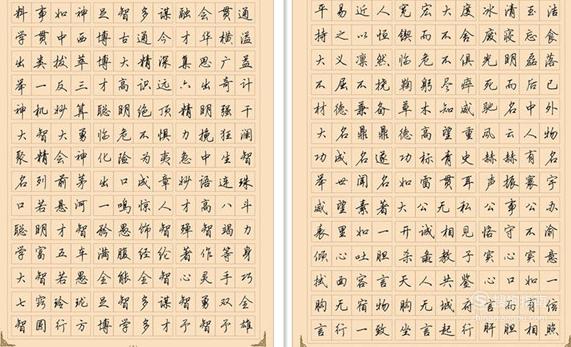 料事如神足智多谋融会贯通
学贯中西博古通今才华横溢
出类拔萃博大精深集思广益
举一反三才高识远六出奇计
神机妙算聪明绝顶精明强干
大智大勇临危不惧力挽狂澜
聚精会神化险为夷急中生智
名列前茅出口成章妙语连珠
口若悬河一鸣惊人才高八斗
聪明才智矜愚饰智殚智竭力
学富五车满腹经纶著作等身
大智若愚全能全智心灵手巧
七窍玲珑足智多谋智勇双全
智圆行方博学多才予智予雄
平易近人宽宏大度冰清玉洁
持之以恒锲而不舍废寝忘食
大义凛然临危不俱光明磊落
不屈不挠鞠躬尽瘁死而后已
材德兼备草木知威驰名中外
大名鼎鼎德高望重风云人物
功成名遂功标青史赫赫有名
举世闻名如雷贯耳声振寰宇
威望素著大公无私公事公办
表里如一开诚相见恪守不渝
倾心吐胆杀彘教子实心实意
拭面容言天人共鉴心口如一
胸无宿物胸无城府言而有信
言行一致坐言起行肝胆相照